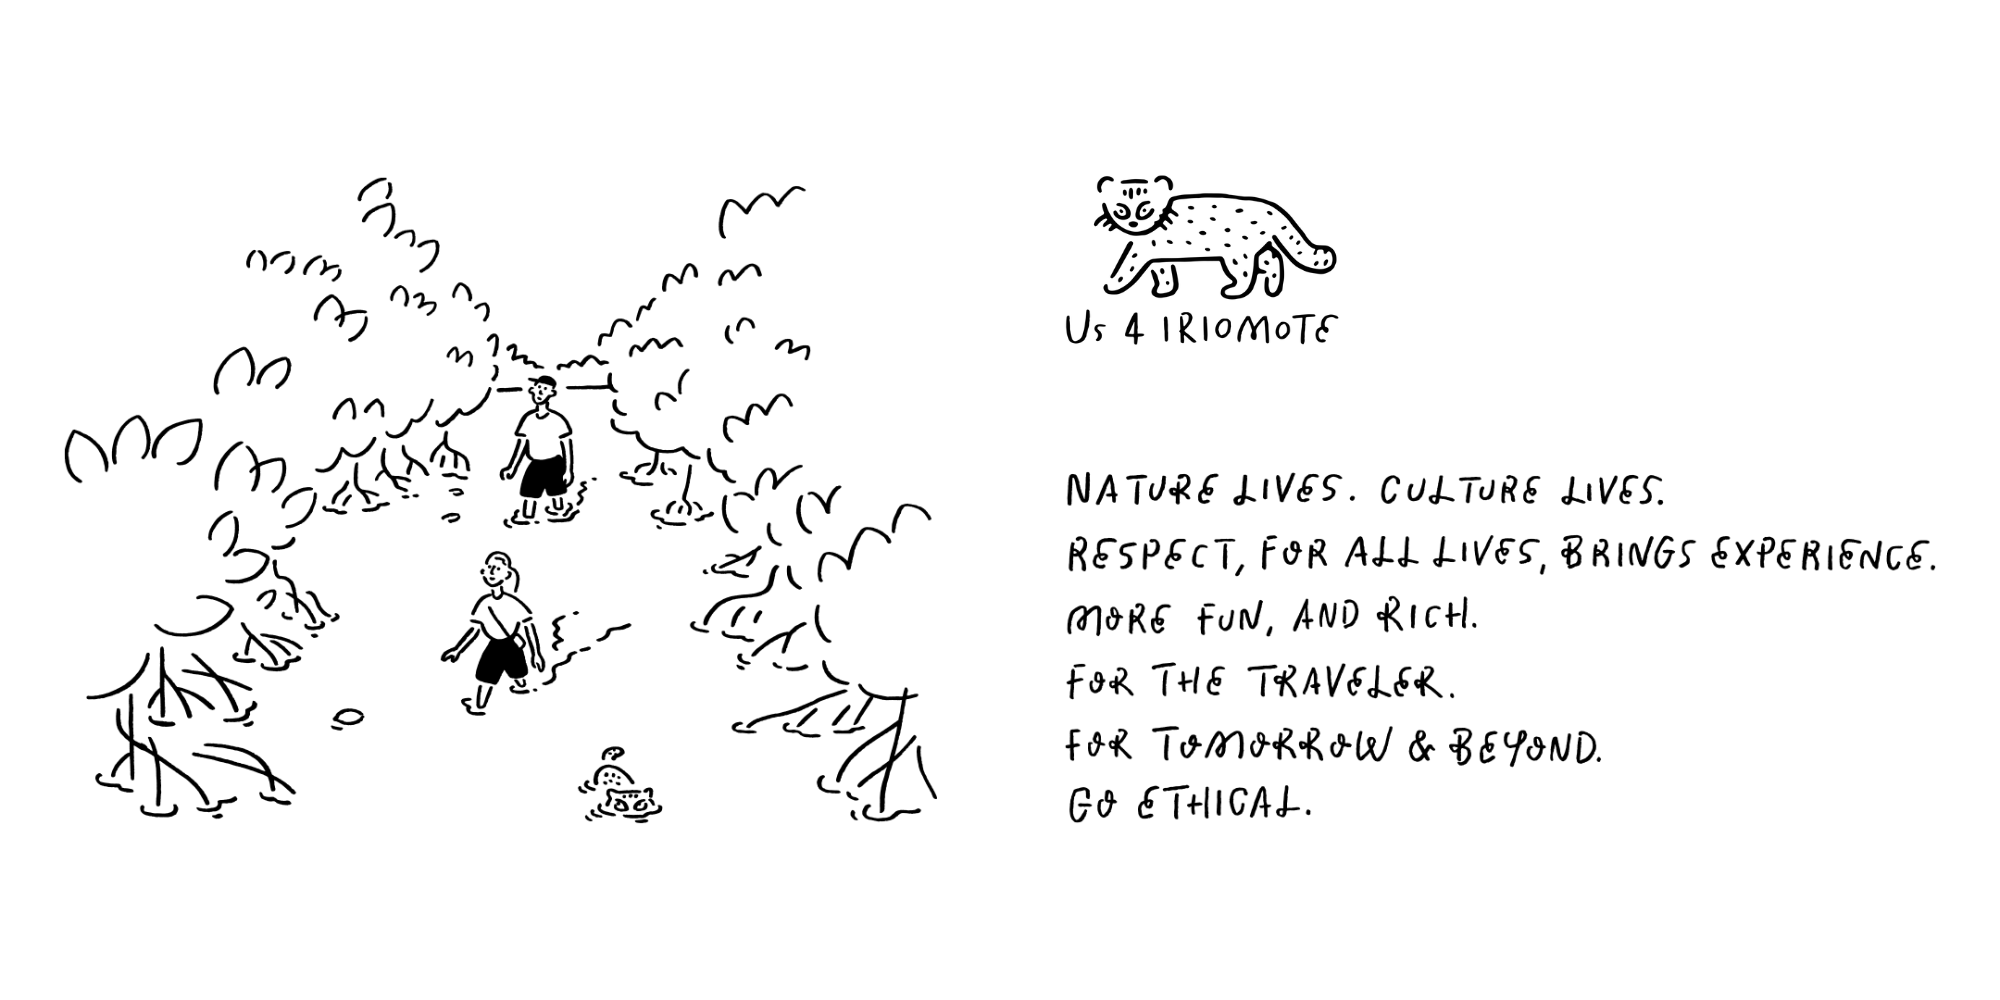 Us 4 IRIOMOTE
NATURE LIVES. CULTURE LIVES.
RESPECT, FOR ALL LIVES, BRINGS EXPERIENCE.
MORE FUN, AND RICH.
FOR THE TRAVELER.
FOR TOMORROW & BEYOND.
GO ETHICAL.